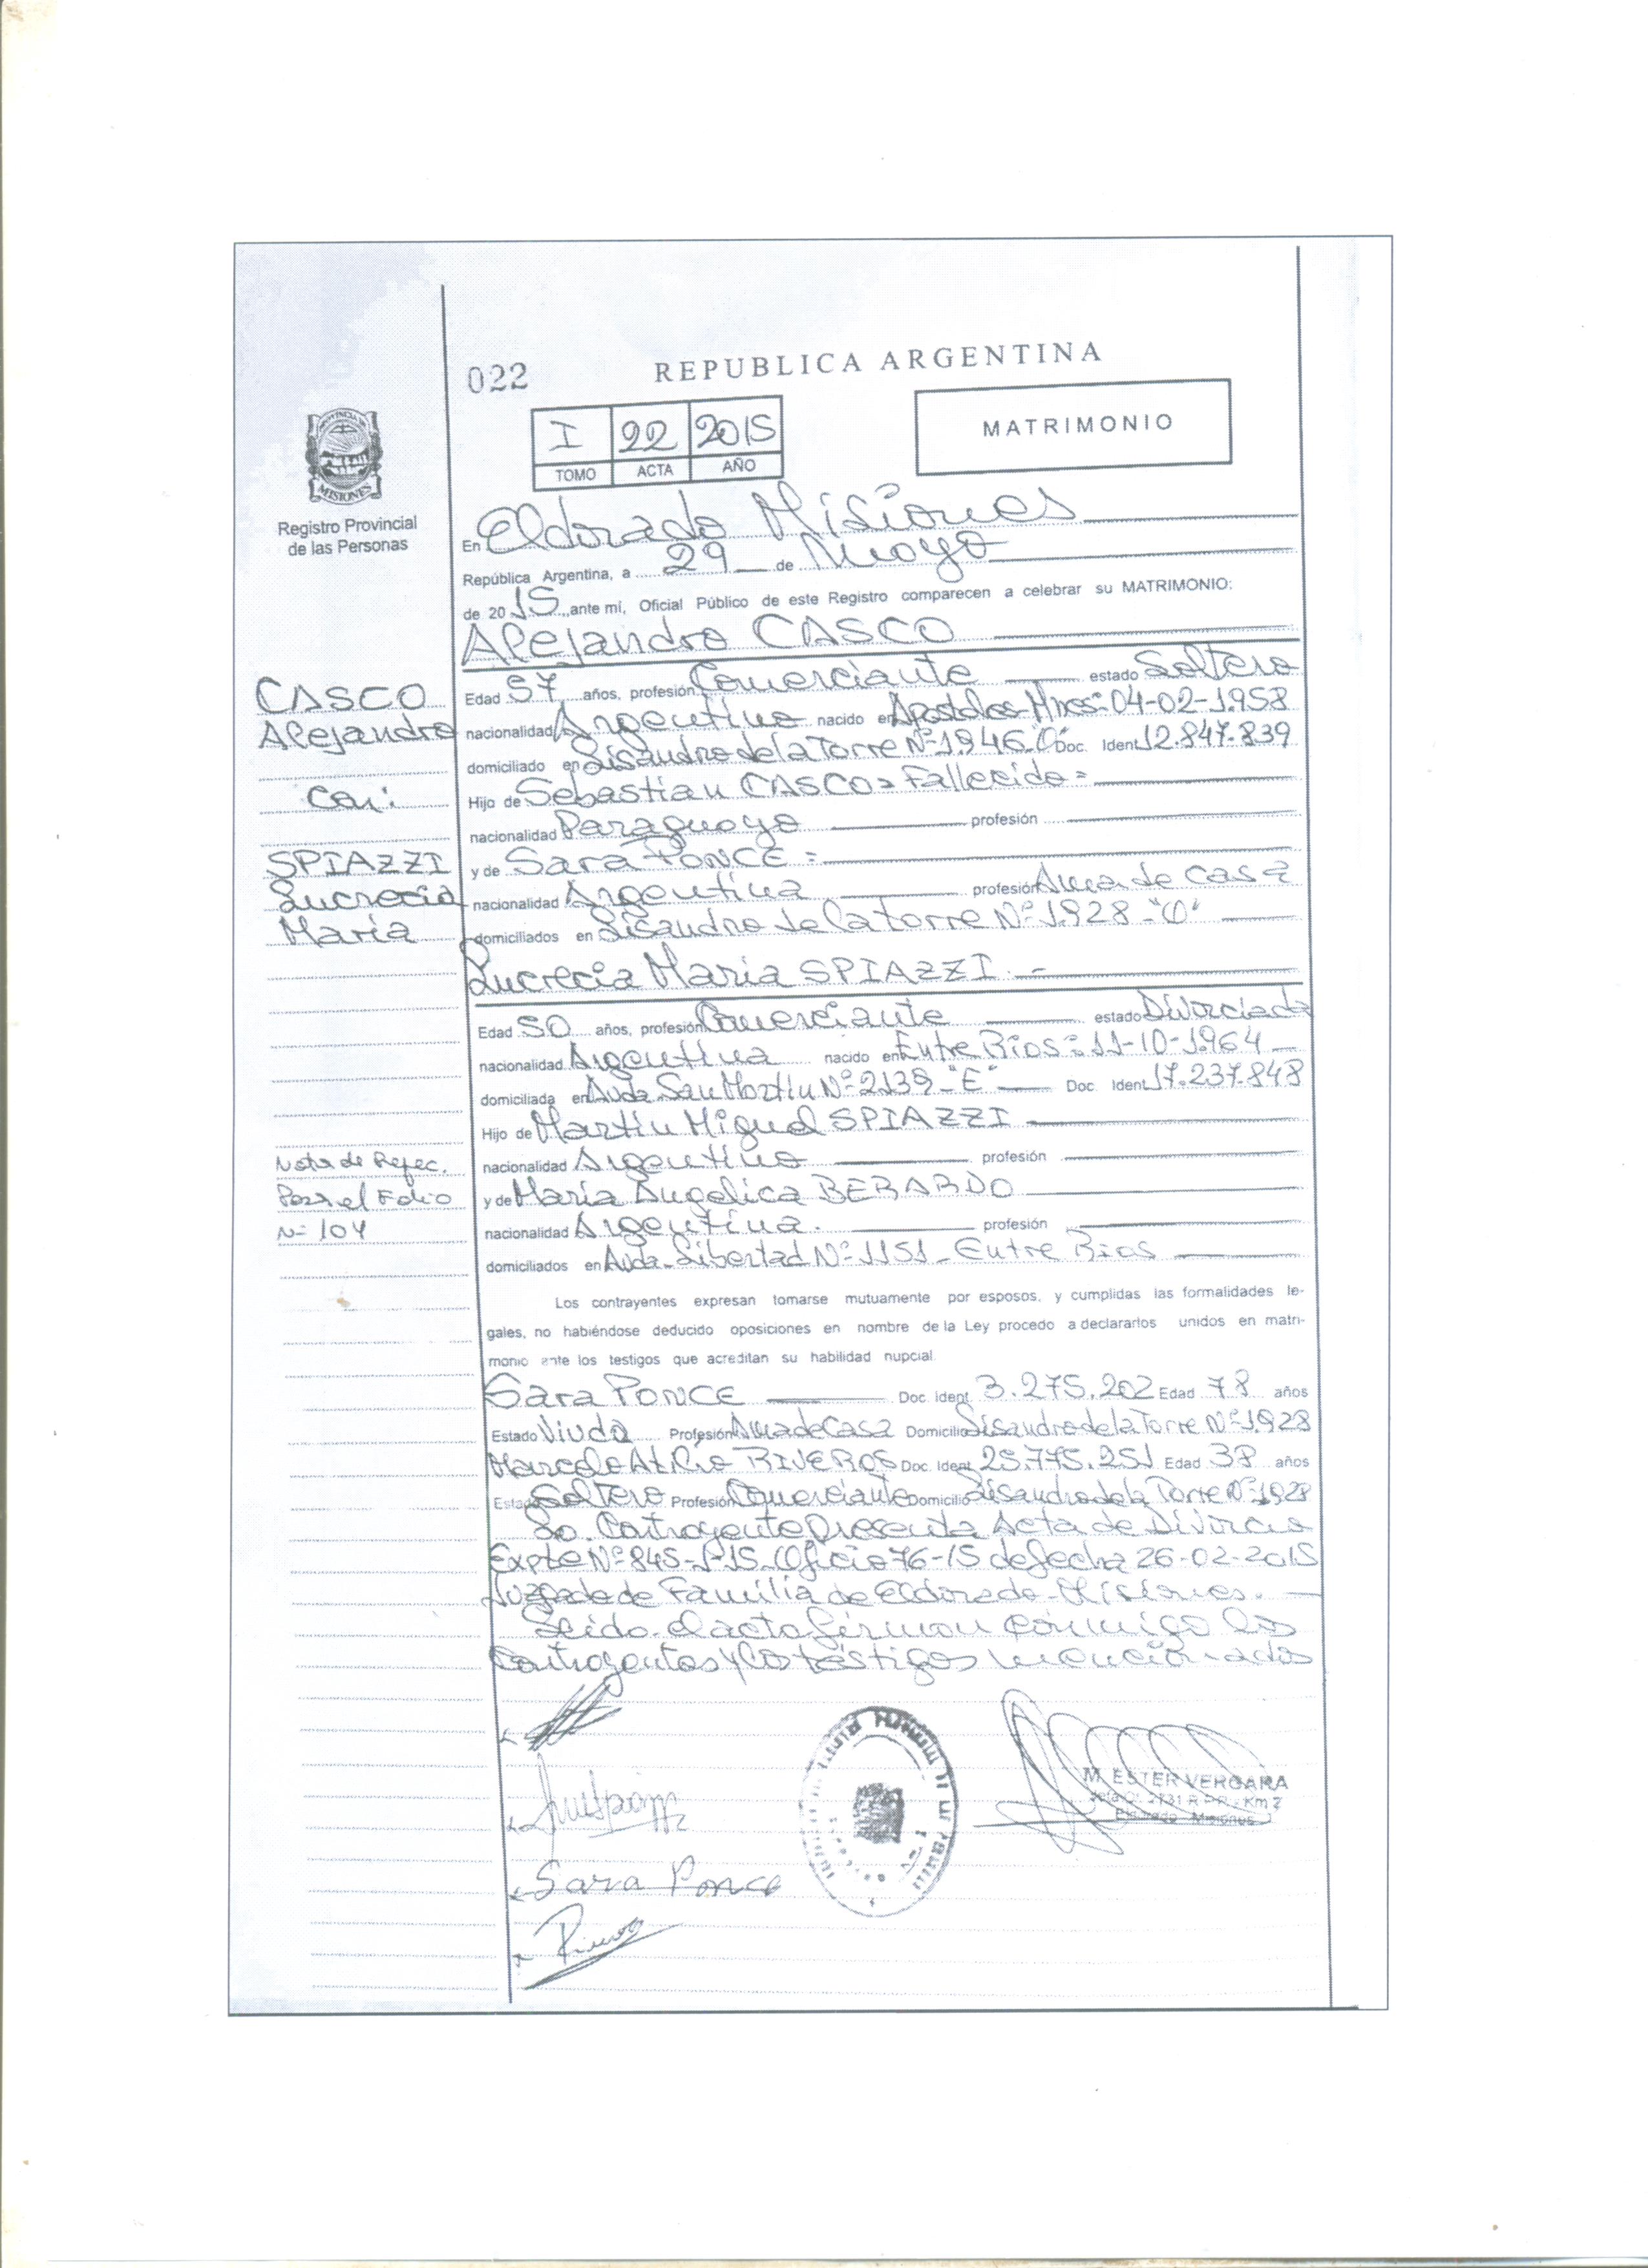 022
REPUBLICA ARGENTINA
I 22 2015
TOMO ACTA AÑO
MATRIMONIO
PROVINCIA DE
MISIONES
Registro Provincial
de las Personas
En Eldorado Misiones
República Argentina, a 29 de Mayo
de 2015, ante mi, Oficial Público de este Registro comparecen a celebrar su MATRIMONIO:
Alejandro CASCO
CASCO
Alejandro
con:
SPIAZZI
Lucrecia
María
Edad 57 años, profesión Comerciante estado Soltero
nacionalidad Argentino nacido en Apostoles-Mnes: 04-02-1.958
domiciliado en Lisandro de la Torre Nº 1.946 "O" Doc. Ident 12.847.839
Hijo de Sebastian CASCO = Fallecido =
nacionalidad Paraguayo profesión
y de Sara PONCE =
nacionalidad Argentina profesión Ama de casa
domiciliados en Lisandro de la torre Nº 1.928 "O"
Lucrecia María SPIAZZI =
Edad 50 años, profesión Comerciante estado Divorciada
nacionalidad Argentina nacido en Entre Rios = 11-10-1.964
domiciliada en Avda San Martin Nº 2139 - "E" Doc. Ident 17.237.848
Hijo de Martin Miguel SPIAZZI
nacionalidad Argentino profesión
y de María Angelica BERARDO
nacionalidad Argentina. profesión
domiciliados en Avda. Libertad Nº 1151 - Entre Rios
Nota de Refec.
Pasa el Folio
Nº 104
Los contrayentes expresan tomarse mutuamente por esposos, y cumplidas las formalidades le-
gales, no habiéndose deducido oposiciones en nombre de la Ley procedo a declararlos unidos en matri-
monio ante los testigos que acreditan su habilidad nupcial.
Sara PONCE Doc. Ident. 3.275.202 Edad 78 años
Estado Viuda Profesión Ama de Casa Domicilio Lisandro de la Torre Nº 1.928
Marcelo Atilio RIVEROS Doc. Ident 25.775.251 Edad 38 años
Estado Soltero Profesión Comerciante Domicilio Lisandro de la Torre Nº 1.928
La Contrayente Presenta Acta de Divorcio
Expte Nº 845-1-15 Oficio 76-15 de fecha 26-02-2015
Juzgado de Familia de Eldorado-Misiones.
Leido el acta firman conmigo los
Contrayentes y los testigos mencionados
Sara Ponce
M. ESTER VERGARA
Of. 2731 R.P.P. - Km 2
Eldorado - Misiones